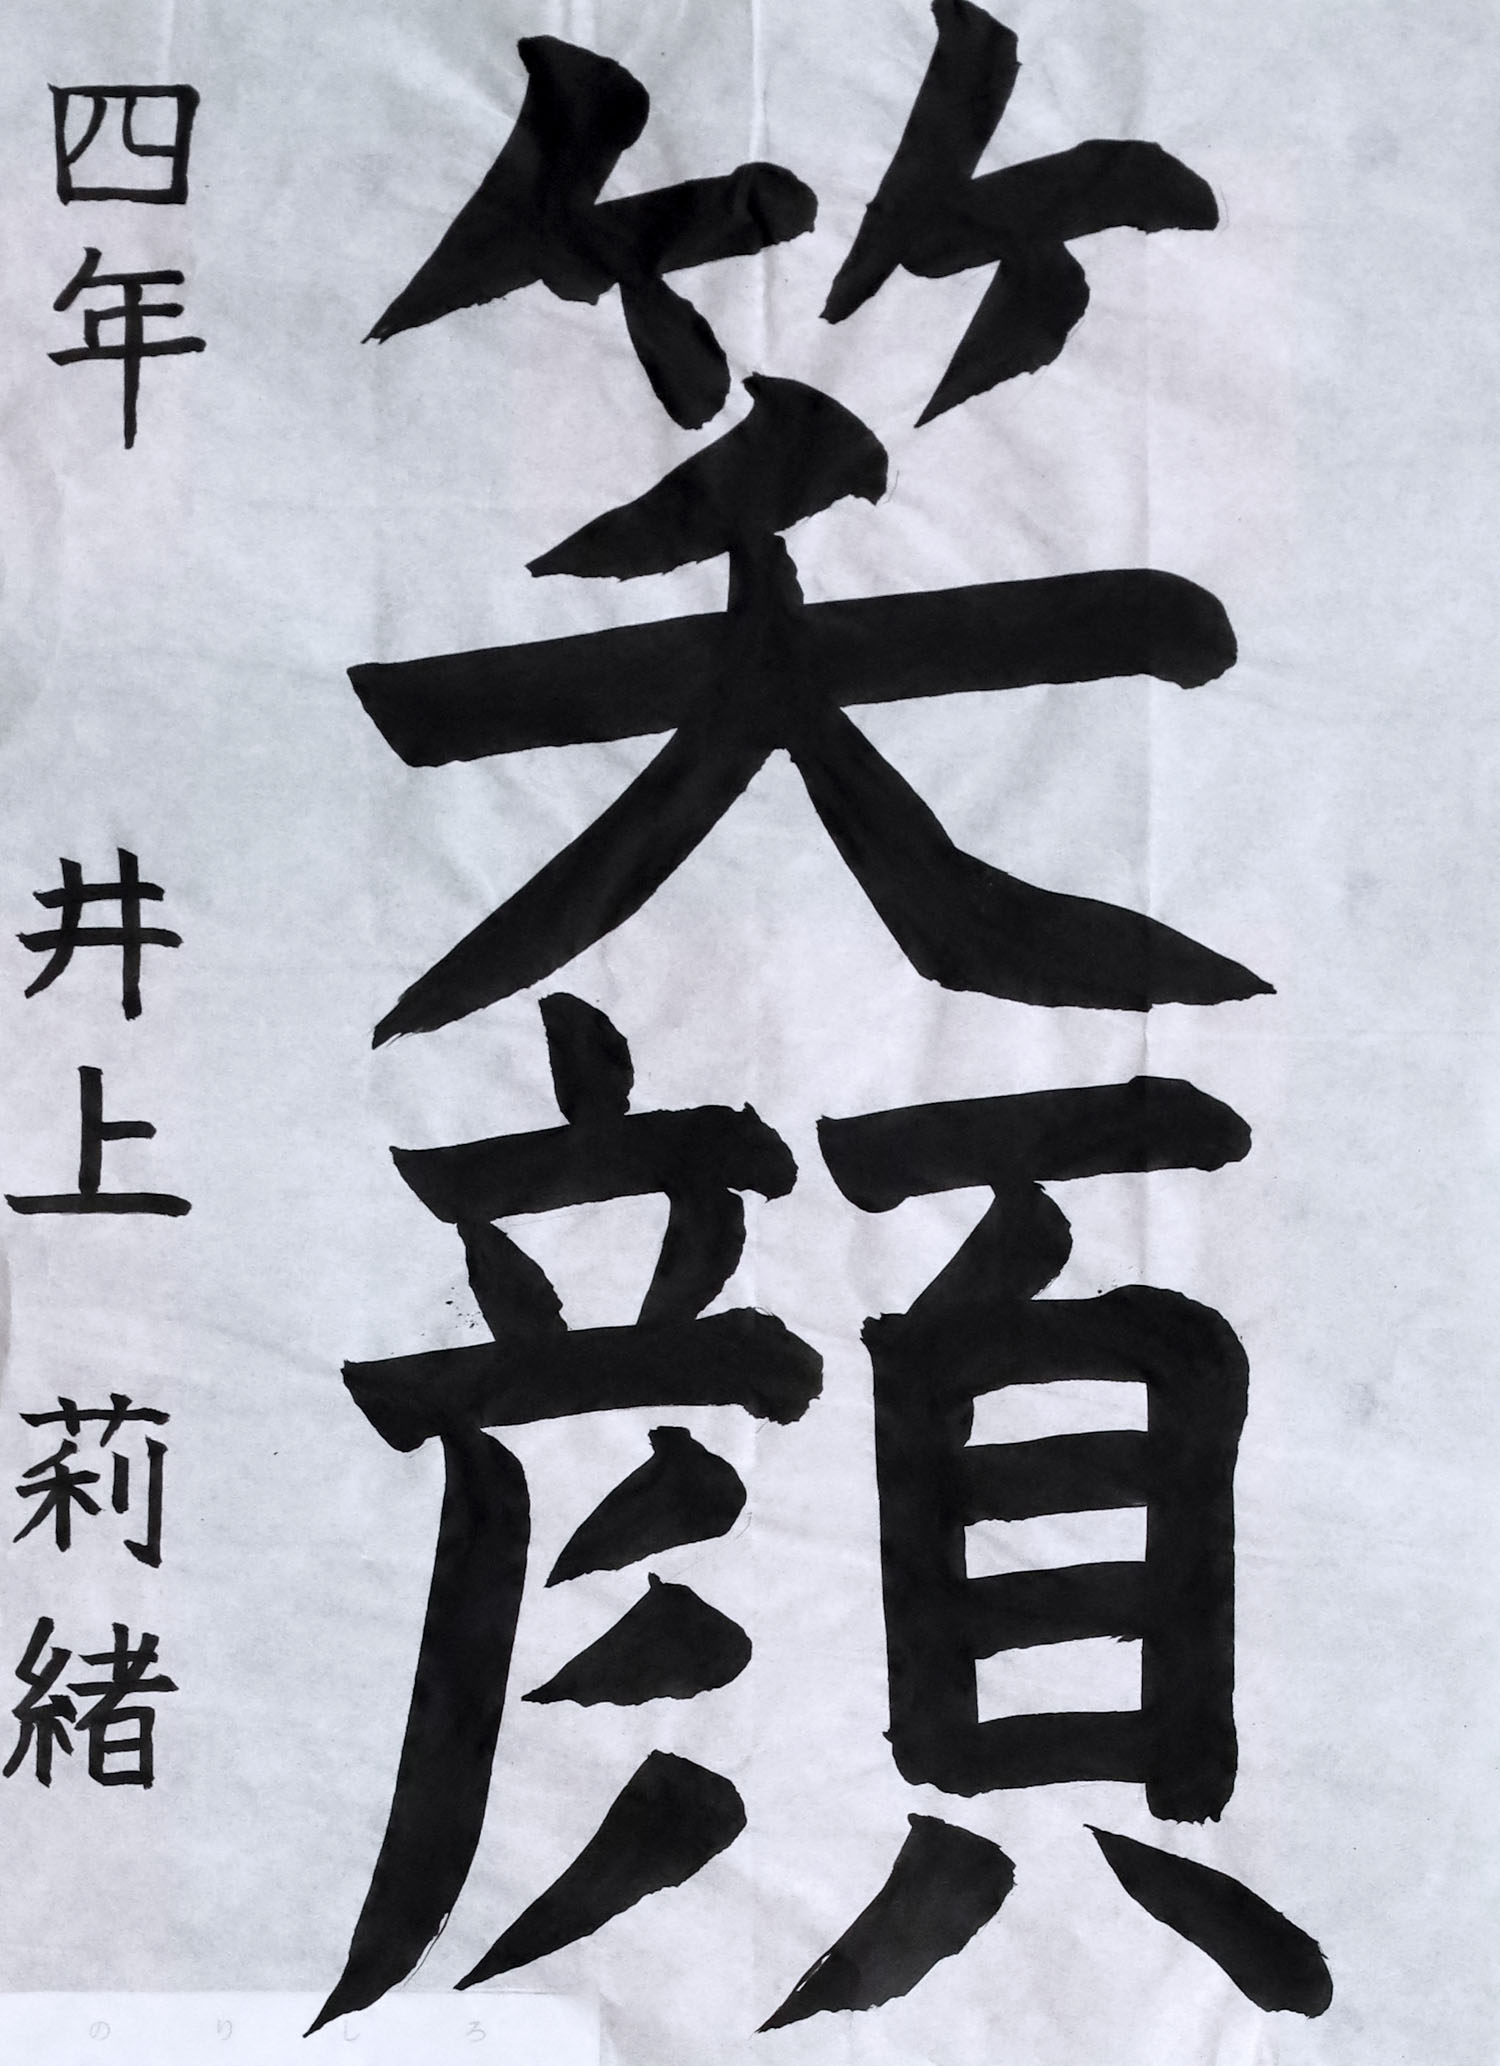 笑顔
四年 井上莉緒
のりしろ